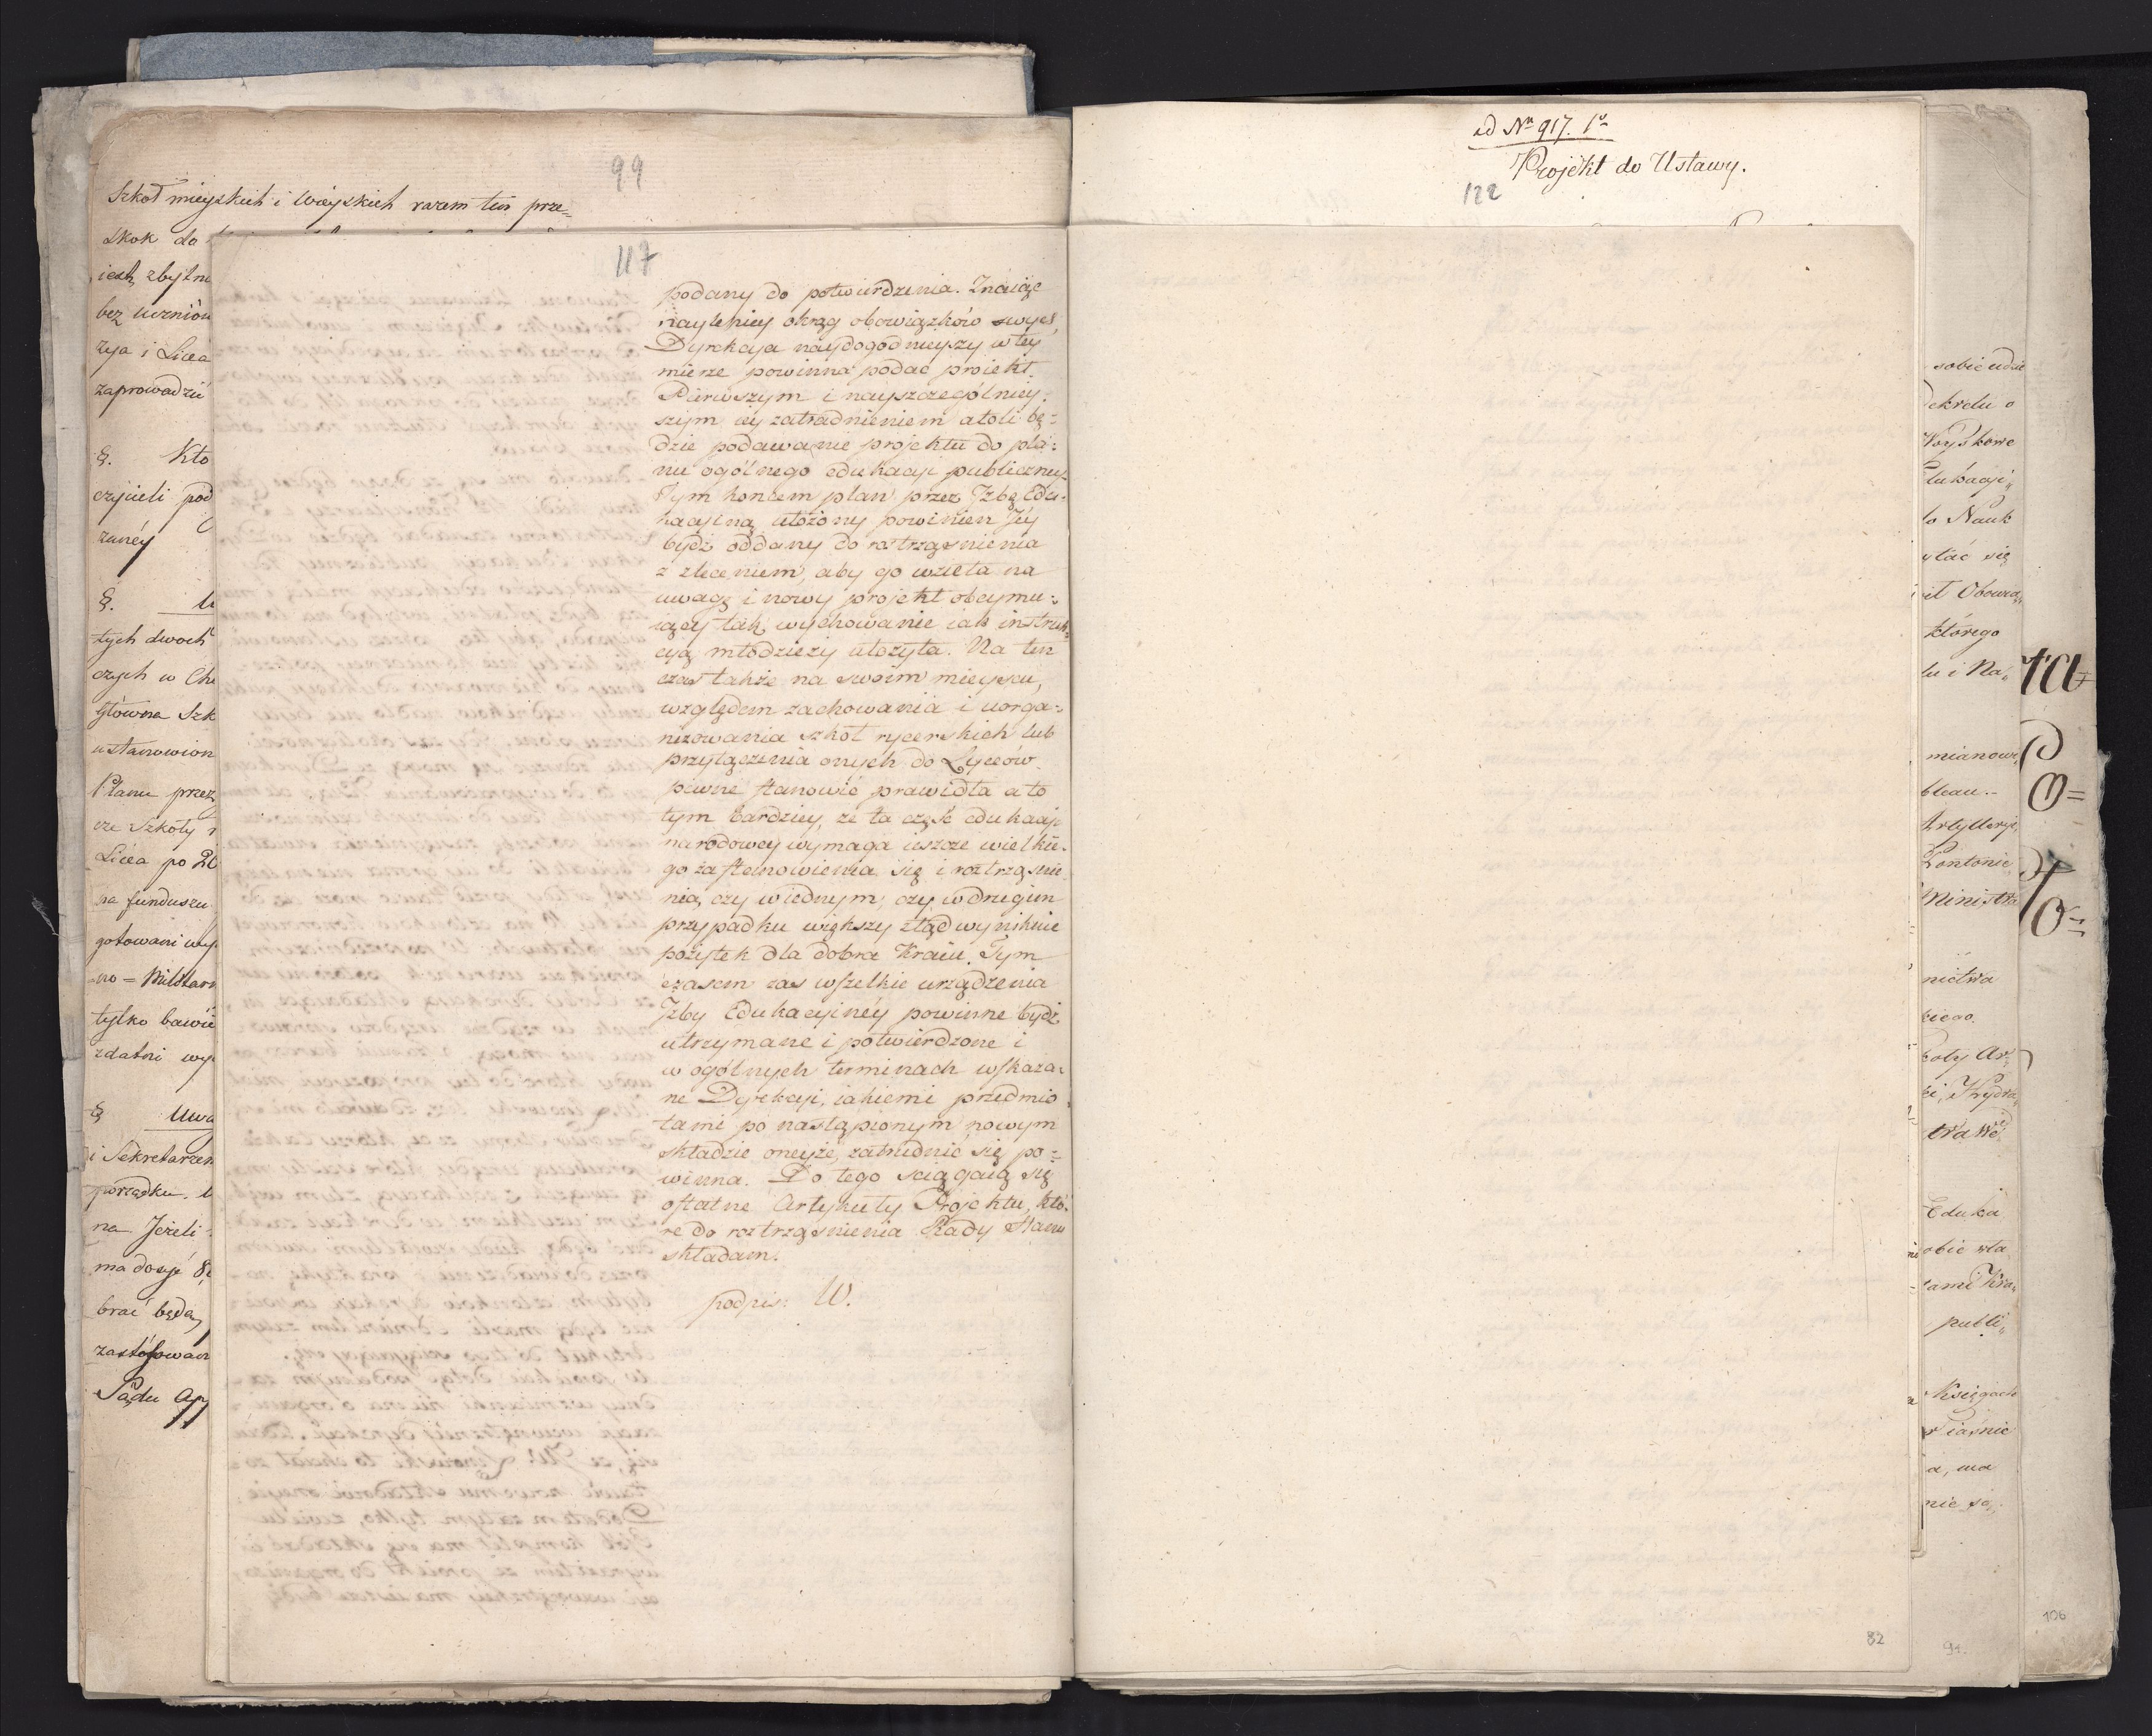 99
Szkół mieyskich i Wieyskich razem ten prze=
skok do
iest zbytni
bez uczniów
zya i Licea
zaprowadzić
§. Kto
czycieli pod
zaney
§.
tych dwoch
czych w Che
Główna Szk
ustanowion
Planu przez
cze Szkoły
Licea po 20
na funduszu
gotowani wy
no = Militarn
tylko bawić
zdatni wy
§ Uwa
i Sekretarzem
porządku.
na Jeżeli
ma dosyć
brać będą
zastósowan
Sądu Ap
117
podany do potwierdzenia. Znaiąc
naylepiey okrąg obowiązków swych,
Dyrekcya naydogodnieyszy w tey
mierze powinna podać proiekt.
Pierwszym i nayszczególniey:
szym iey zatrudnieniem atoli bę=
dzie podawanie projektu do pla:
nu ogólnego edukacyi publiczney.
Tym koncem plan przez Izbę Edu:
kacyiną ułożony powinien Jéy
bydź oddany do roztrząsnienia
z zleceniem, aby go wzięła na
uwagę i nowy projekt obeymu:
iący tak wychowanie iak instruk
cyą młodzieży ułożyła. Na ten
czas także na swoim mieyscu,
względem zachowania i uorga:
nizowania szkół rycerskich lub
przyłączenia onych do Lyceów
pewne stanowić prawidła a to
tym bardziey, że ta część edukacyi
narodowey wymaga ieszcze wielkie.
go zastanowienia się i roztrząsnie
nia, czy w iednym, czy w drugim
przypadku większy ztąd wyniknie
pożytek dla dobra Kraiu. Tym
czasem zas wszelkie urządzenia
Izby Edukacyinéy powinne bydź
utrzymane i potwierdzone i
w ogólnych terminach wskaza:
ne Dyrekcyi, iakiemi przedmio
tami po nastąpionym nowym
składzie oneyże, zatrudnić się po=
winna. Do tego sciągaią się
ostatne Artykuły Projektu, któ.
re do roztrząsnienia Rady Stanu
składam.
podpis: W.
ad Nr 917. 1o
Projekt do Ustawy.
122
82
sobie udzie
Dekretu o
Woyskowe
Edukacyi
do Nauk
ystać się
którego
lu i Na
mianowi
bleau.
Artylleryi
Pontonie
Ministra
nictwa
kiego
koły Ar
ki, Hydra
Eduka
obie wła
ami Kra
publi
Księgach
iaśnie
a, ma
nie są
94.
ra=
o=
106